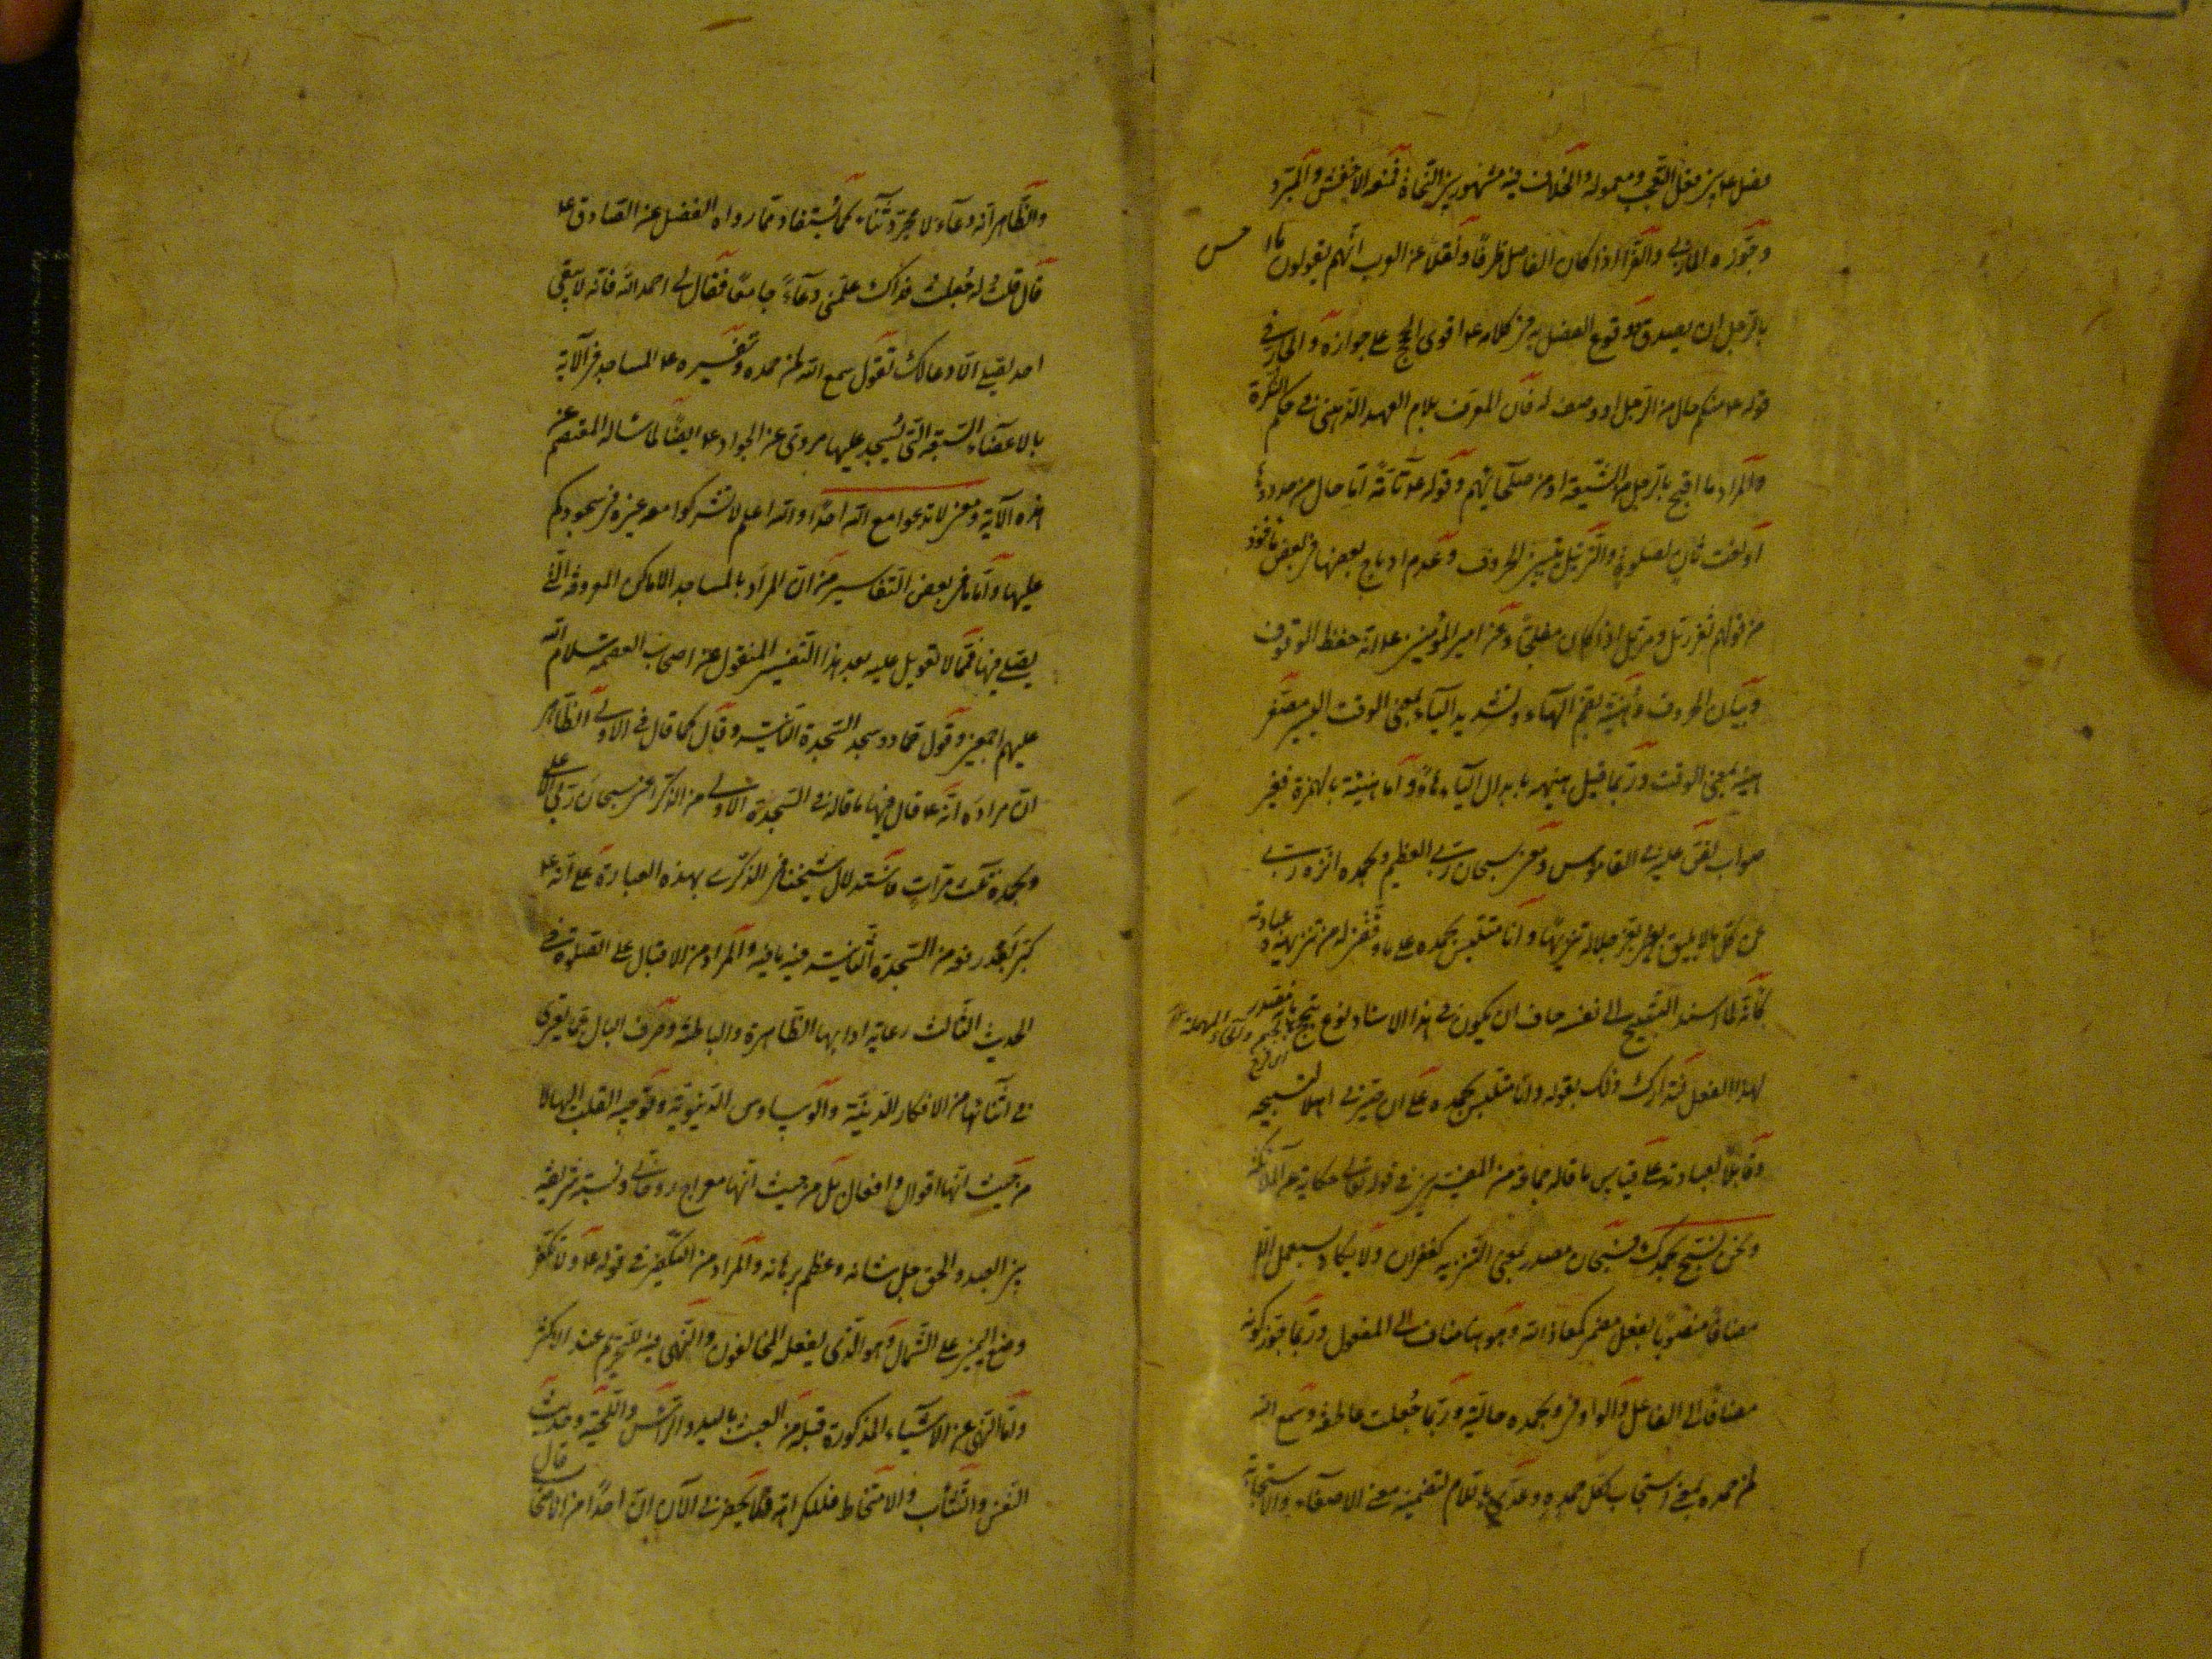 فصل ع م بين فعل التعجب ومعموله والخلاف فيه مشهور بين النحاة فمنعه الاخفش والمبرد
وجوزه المازني والفراء اذا كان الفاصل ظرفا ونقلا عن العرب انهم يقولون ما احسن
بالرجل ان يصدق ووقوع الفصل به في كلامه ع م اقوى الحجج على جوازه والجار في
قوله ع م منكم حال من الرجل او وصف له فان المعرف بلام العهد الذهني في حكم النكرة
والمراد ما اقبح بالرجل من الشيعة او من صلحائهم وقوله ع م تامة اما حال من حدودها
او نعت ثان لصلوة والترتيل تبيين الحروف وعدم ادماج بعضها في بعض ماخوذ
من قولهم ثغر رتل ومرتل اذا كان مفلجا وعن امير المؤمنين ع م انه حفظ الوقوف
وبيان الحروف وهنية بضم الهاء وتشديد الياء بمعنى الوقت اليسير مصغر
هنة بمعنى الوقت وربما قيل هنيهة بابدال الياء هاء واما هنيئة بالهمزة فغير
صواب نص عليه في القاموس ومعنى سبحان ربي العظيم وبحمده انزه ربي
عن كل ما لا يليق بعز جلاله تنزيها وانا متلبس بحمده على ما وفقني له من تنزيهه وعبادته
كانه لما اسند التسبيح الى نفسه خاف ان يكون في هذا الاسناد نوع تبجح بانه مصدر
بالجيم والحاء المهملة
اي فرح
لهذا الفعل فتدارك ذلك بقوله وانا متلبس بحمده على ان صيرني اهلا لتسبيحه
وقابلا لعبادته على قياس ما قاله جماعة من المفسرين في قوله تعالى حكاية عن الملائكة
ونحن نسبح بحمدك فسبحان مصدر بمعنى التنزيه كغفران ولا يكاد يستعمل الا
مضافا منصوبا بفعل مضمر كمعاذ الله وهو هنا مضاف الى المفعول وربما جوز كونه
مضافا الى الفاعل والواو في وبحمده حالية وربما جعلت عاطفة وسمع الله
لمن حمده بمعنى استجاب لكل من حمده وعدي باللام لتضمينه معنى الاصغاء والاستجابة
والظاهر انه دعاء لا مجرد ثناء كما يستفاد مما رواه المفضل عن الصادق ع م
قال قلت له جعلت فداك علمني دعاء جامعا فقال لي احمد الله فانه لا يبقى
احد يصلي الا دعا لك يقول سمع الله لمن حمده وتفسيره ع م المساجد في الآية
بالاعضاء السبعة التي يسجد عليها مروي عن الجواد ع م ايضا لما ساله المعتصم عن
هذه الآية ومعنى لا تدعوا مع الله احدا والله اعلم لا تشركوا معه غيره في سجودكم
عليها واما ما في بعض التفاسير من ان المراد بالمساجد الاماكن المعروفة التي
يصلى فيها فمما لا تعويل عليه بعد هذا التفسير المنقول عن اصحاب العصمة سلام الله
عليهم اجمعين وقول حماد وسجد السجدة الثانية وقال كما قال في الاولى الظاهر
ان مراده انه ع م قال فيها ما قاله في السجدة الاولى من الذكر اعني سبحان ربي الاعلى
وبحمده ثلث مرات فاستدلال شيخنا في الذكرى بهذه العبارة على انه ع م
كبر بعد رفعه من السجدة الثانية فيه ما فيه والمراد من الاقبال على الصلوة في
الحديث الثالث رعاية ادابها الظاهرة والباطنة وصرف البال عما يعتري
في اثنائها من الافكار الدنية والوساوس الدنيوية وتوجيه القلب اليها لا
من حيث انها اقوال وافعال بل من حيث انها معراج روحاني ونسبة شريفة
بين العبد والحق جل شانه وعظم برهانه والمراد من التكفير في قوله ع م ولا تكفر
وضع اليمين على الشمال وهو الذي يفعله المخالفون والنهي فيه للتحريم عند الاكثر
واما النهي عن الاشياء المذكورة قبله من العبث باليد والراس واللحية وحديث
النفس والتثاب والامتخاط فللكراهة ولا يحضرني الآن ان احدا من الاصحاب قال